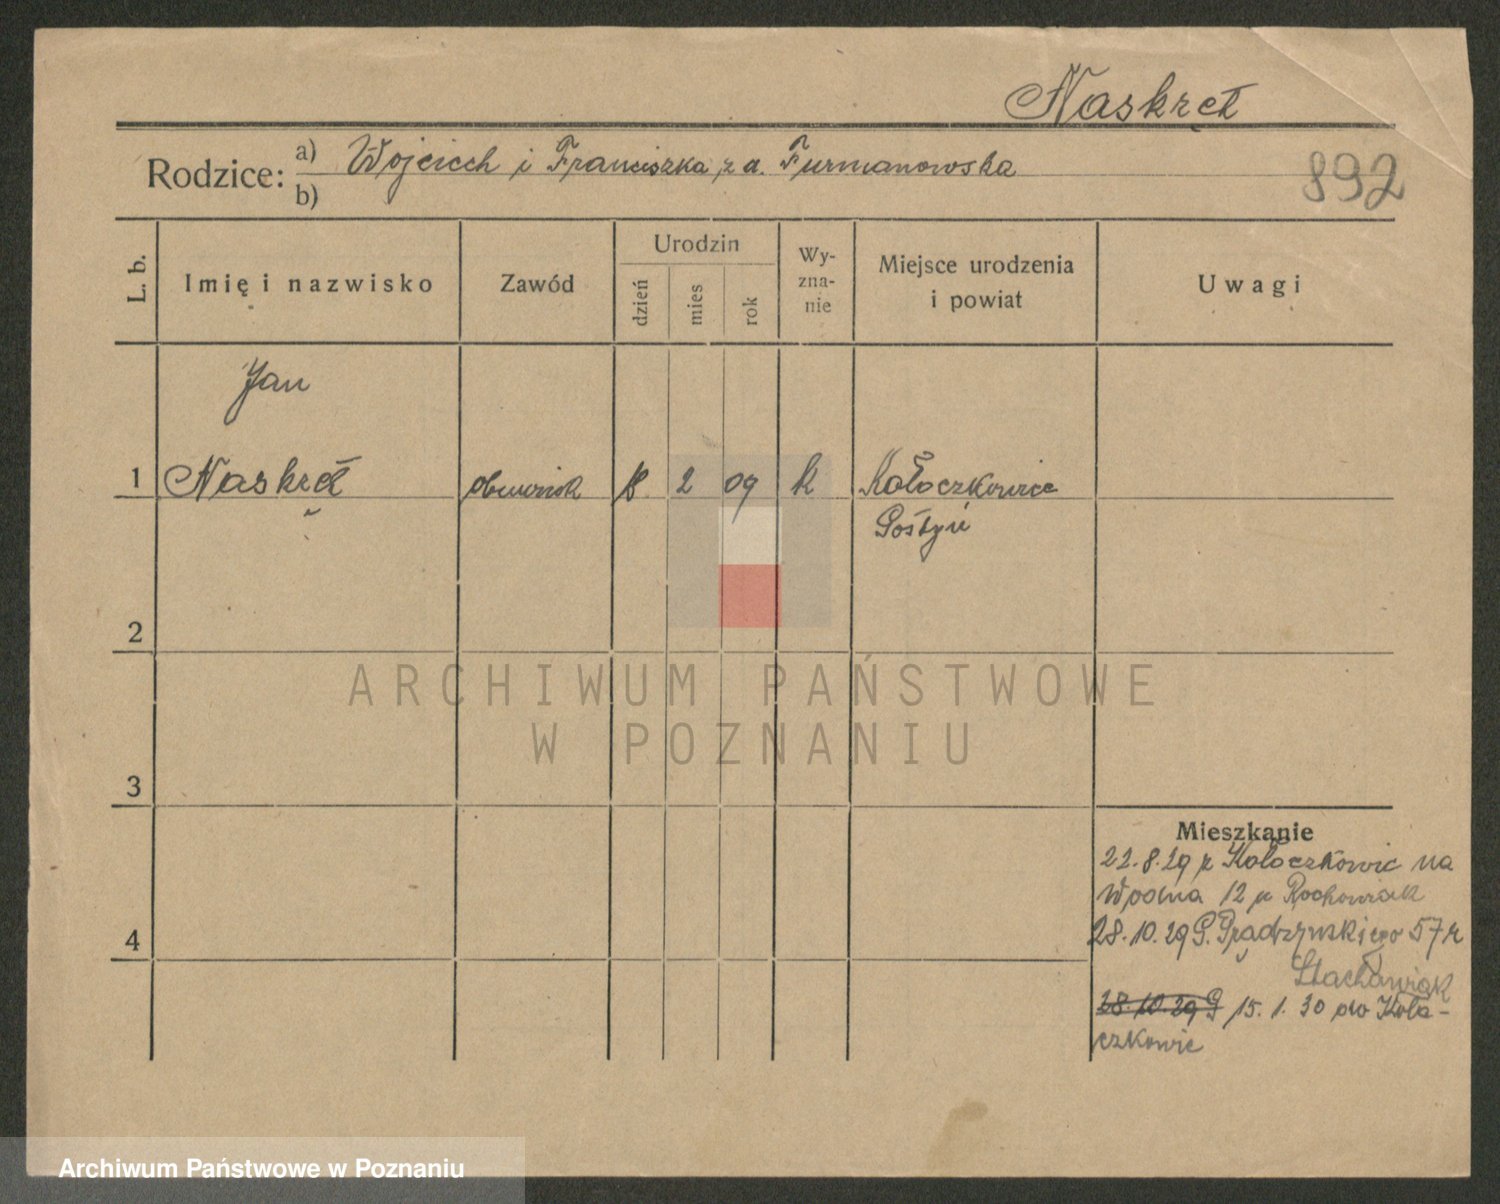 Naskręt
Rodzice: a) Wojciech i Franciszka z d. Furmanowska
b)
892
L. b.
Imię i nazwisko
Zawód
Urodzin
dzień
mies
rok
Wy-
zna-
nie
Miejsce urodzenia
i powiat
Uwagi
Jan
1 Naskręt 2 09 k Kołaczkowice
Gostyń
2
3
4
ARCHIWUM PAŃSTWOWE
W POZNANIU
Mieszkanie
22.8.29 z Kołaczkowic na
Wodna 12 u Rochowiak
28.10.29 G. Prądzyńskiego 57 u
Stachowiak
28.10.29 G 15.1.30 do Koła-
czkowic
Archiwum Państwowe w Poznaniu